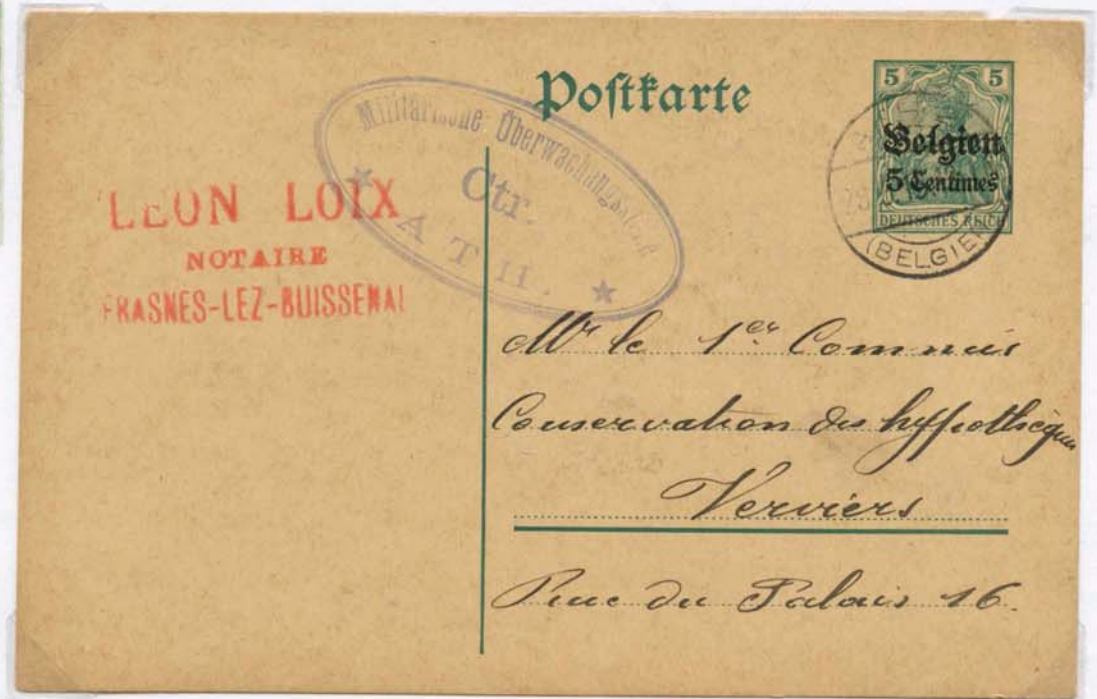 Postkarte
5 5
Belgien
5 Centimes
DEUTSCHES REICH
(BELGIEN
Militärische Überwachungsstelle
Ctr.
★ ATH. ★
LEON LOIX
NOTAIRE
FRASNES-LEZ-BUISSENAL
Mr le 1er Commis
Conservation des hypothèques
Verviers
Rue du Palais 16.